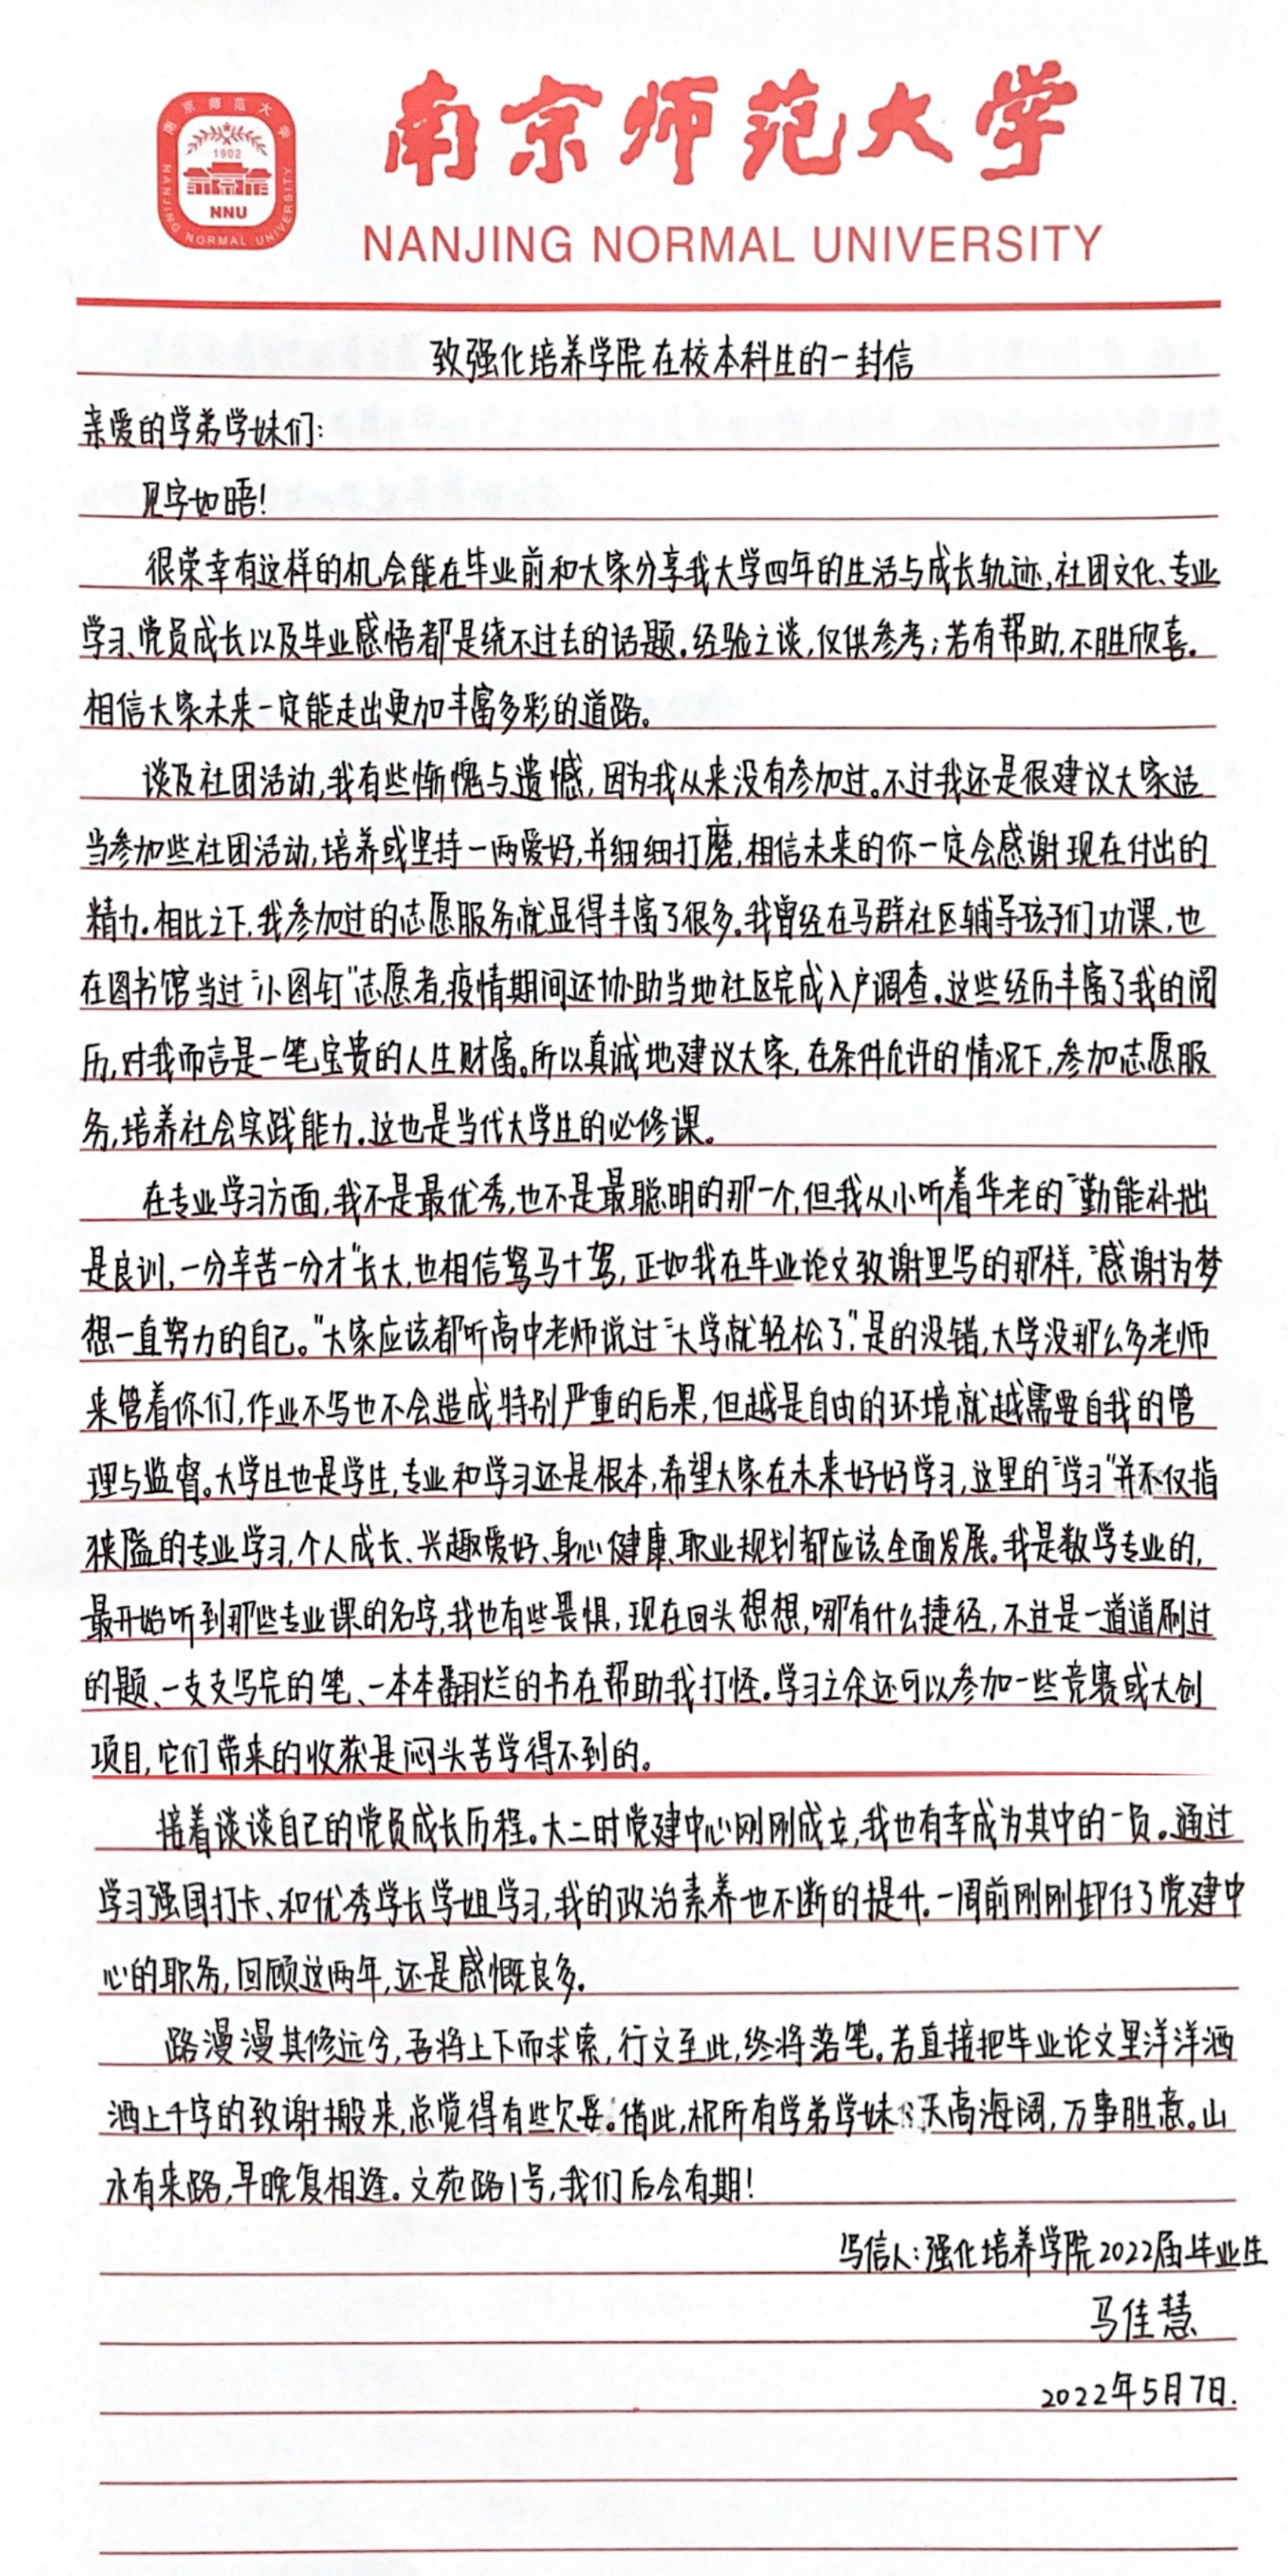 南京师范大学
1902
NNU
NANJING NORMAL UNIVERSITY
南京师范大学
NANJING NORMAL UNIVERSITY
致强化培养学院在校本科生的一封信
亲爱的学弟学妹们：
见字如晤！
很荣幸有这样的机会能在毕业前和大家分享我大学四年的生活与成长轨迹，社团文化、专业
学习、党员成长以及毕业感悟都是绕不过去的话题。经验之谈，仅供参考；若有帮助，不胜欣喜。
相信大家未来一定能走出更加丰富多彩的道路。
谈及社团活动，我有些惭愧与遗憾，因为我从来没有参加过。不过我还是很建议大家适
当参加些社团活动，培养或坚持一两爱好，并细细打磨，相信未来的你一定会感谢现在付出的
精力。相比之下，我参加过的志愿服务就显得丰富了很多。我曾经在马群社区辅导孩子们功课，也
在图书馆当过“小图钉”志愿者，疫情期间还协助当地社区完成入户调查。这些经历丰富了我的阅
历，对我而言是一笔宝贵的人生财富。所以真诚地建议大家，在条件允许的情况下，参加志愿服
务，培养社会实践能力。这也是当代大学生的必修课。
在专业学习方面，我不是最优秀，也不是最聪明的那一个，但我从小听着华老的“勤能补拙
是良训，一分辛苦一分才”长大，也相信驽马十驾，正如我在毕业论文致谢里写的那样，“感谢为梦
想一直努力的自己。”大家应该都听高中老师说过“大学就轻松了”，是的没错，大学没那么多老师
来管着你们，作业不写也不会造成特别严重的后果，但越是自由的环境就越需要自我的管
理与监督。大学生也是学生，专业和学习还是根本，希望大家在未来好好学习，这里的“学习”并不仅指
狭隘的专业学习，个人成长、兴趣爱好、身心健康、职业规划都应该全面发展。我是数学专业的，
最开始听到那些专业课的名字，我也有些畏惧，现在回头想想，哪有什么捷径，不过是一道道刷过
的题、一支支写完的笔、一本本翻烂的书在帮助我打怪。学习之余还可以参加一些竞赛或大创
项目，它们带来的收获是闷头苦学得不到的。
接着谈谈自己的党员成长历程。大二时党建中心刚刚成立，我也有幸成为其中的一员。通过
学习强国打卡、和优秀学长学姐学习，我的政治素养也不断的提升。一周前刚刚卸任了党建中
心的职务，回顾这两年，还是感慨良多。
路漫漫其修远兮，吾将上下而求索，行文至此，终将落笔。若直接把毕业论文里洋洋洒
洒上千字的致谢搬来，总觉得有些欠妥。借此，祝所有学弟学妹们天高海阔，万事胜意。山
水有来路，早晚复相逢。文苑路1号，我们后会有期！
写信人：强化培养学院2022届毕业生
马佳慧
2022年5月7日.